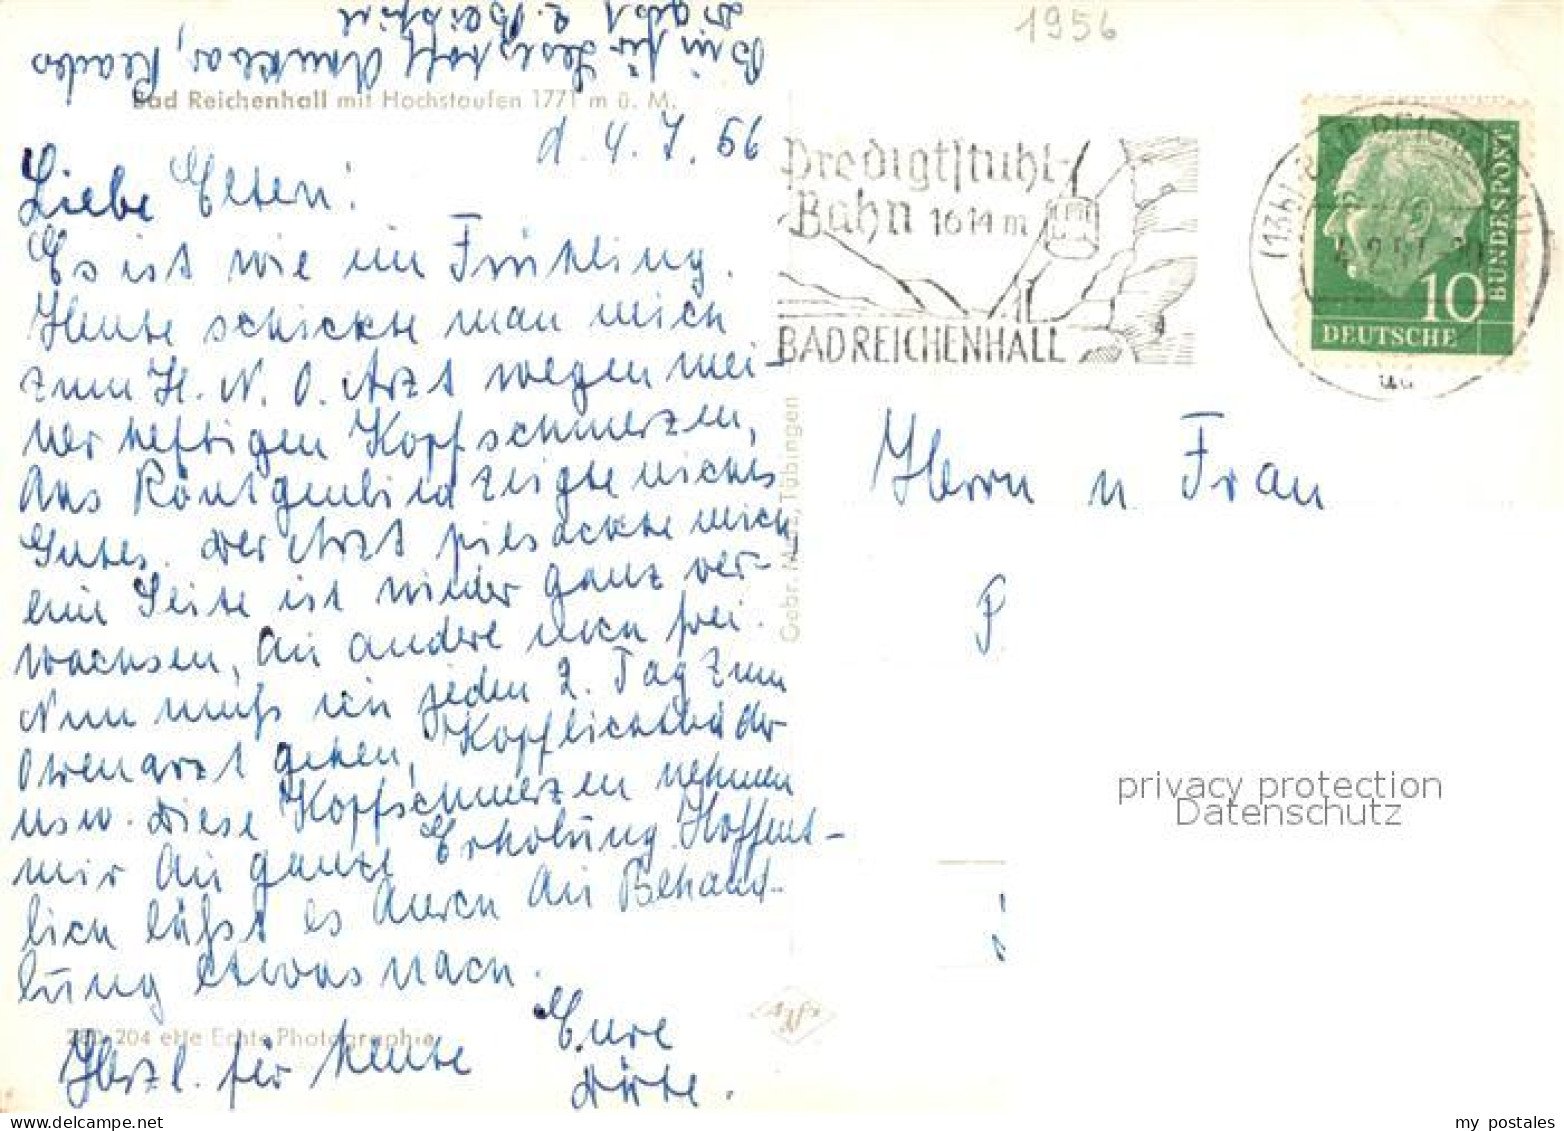 1956
Bin für Lesestoff dankbar, Readers
Digest z. Beispiel
Bad Reichenhall mit Hochstaufen 1771 m ü. M.
d. 4. 7. 56
Liebe Eltern!
Es ist wie im Frühling.
Heute schickte man mich
zum H. N. O. Arzt wegen mei-
ner heftigen Kopfschmerzen,
das Röntgenbild zeigte nichts
Gutes. Der Arzt piesackte mich
eine Seite ist wieder ganz ver-
wachsen, die andere noch frei.
Nun muß ich jeden 2. Tag zum
Ohrenarzt gehen, Kopflichtbäder
usw. Diese Kopfschmerzen nehmen
mir die ganze Erholung. Hoffent-
lich läßt es durch die Behand-
lung etwas nach.
Herzl. für heute Eure
Dörte.
280 204 ette Echte Photographie
Gebr. Tübingen
Predigtstuhl-
Bahn 1614 m
BAD REICHENHALL
(13b)
DEUTSCHE
BUNDESPOST
10
Herrn u. Frau
P.
privacy protection
Datenschutz
my postales